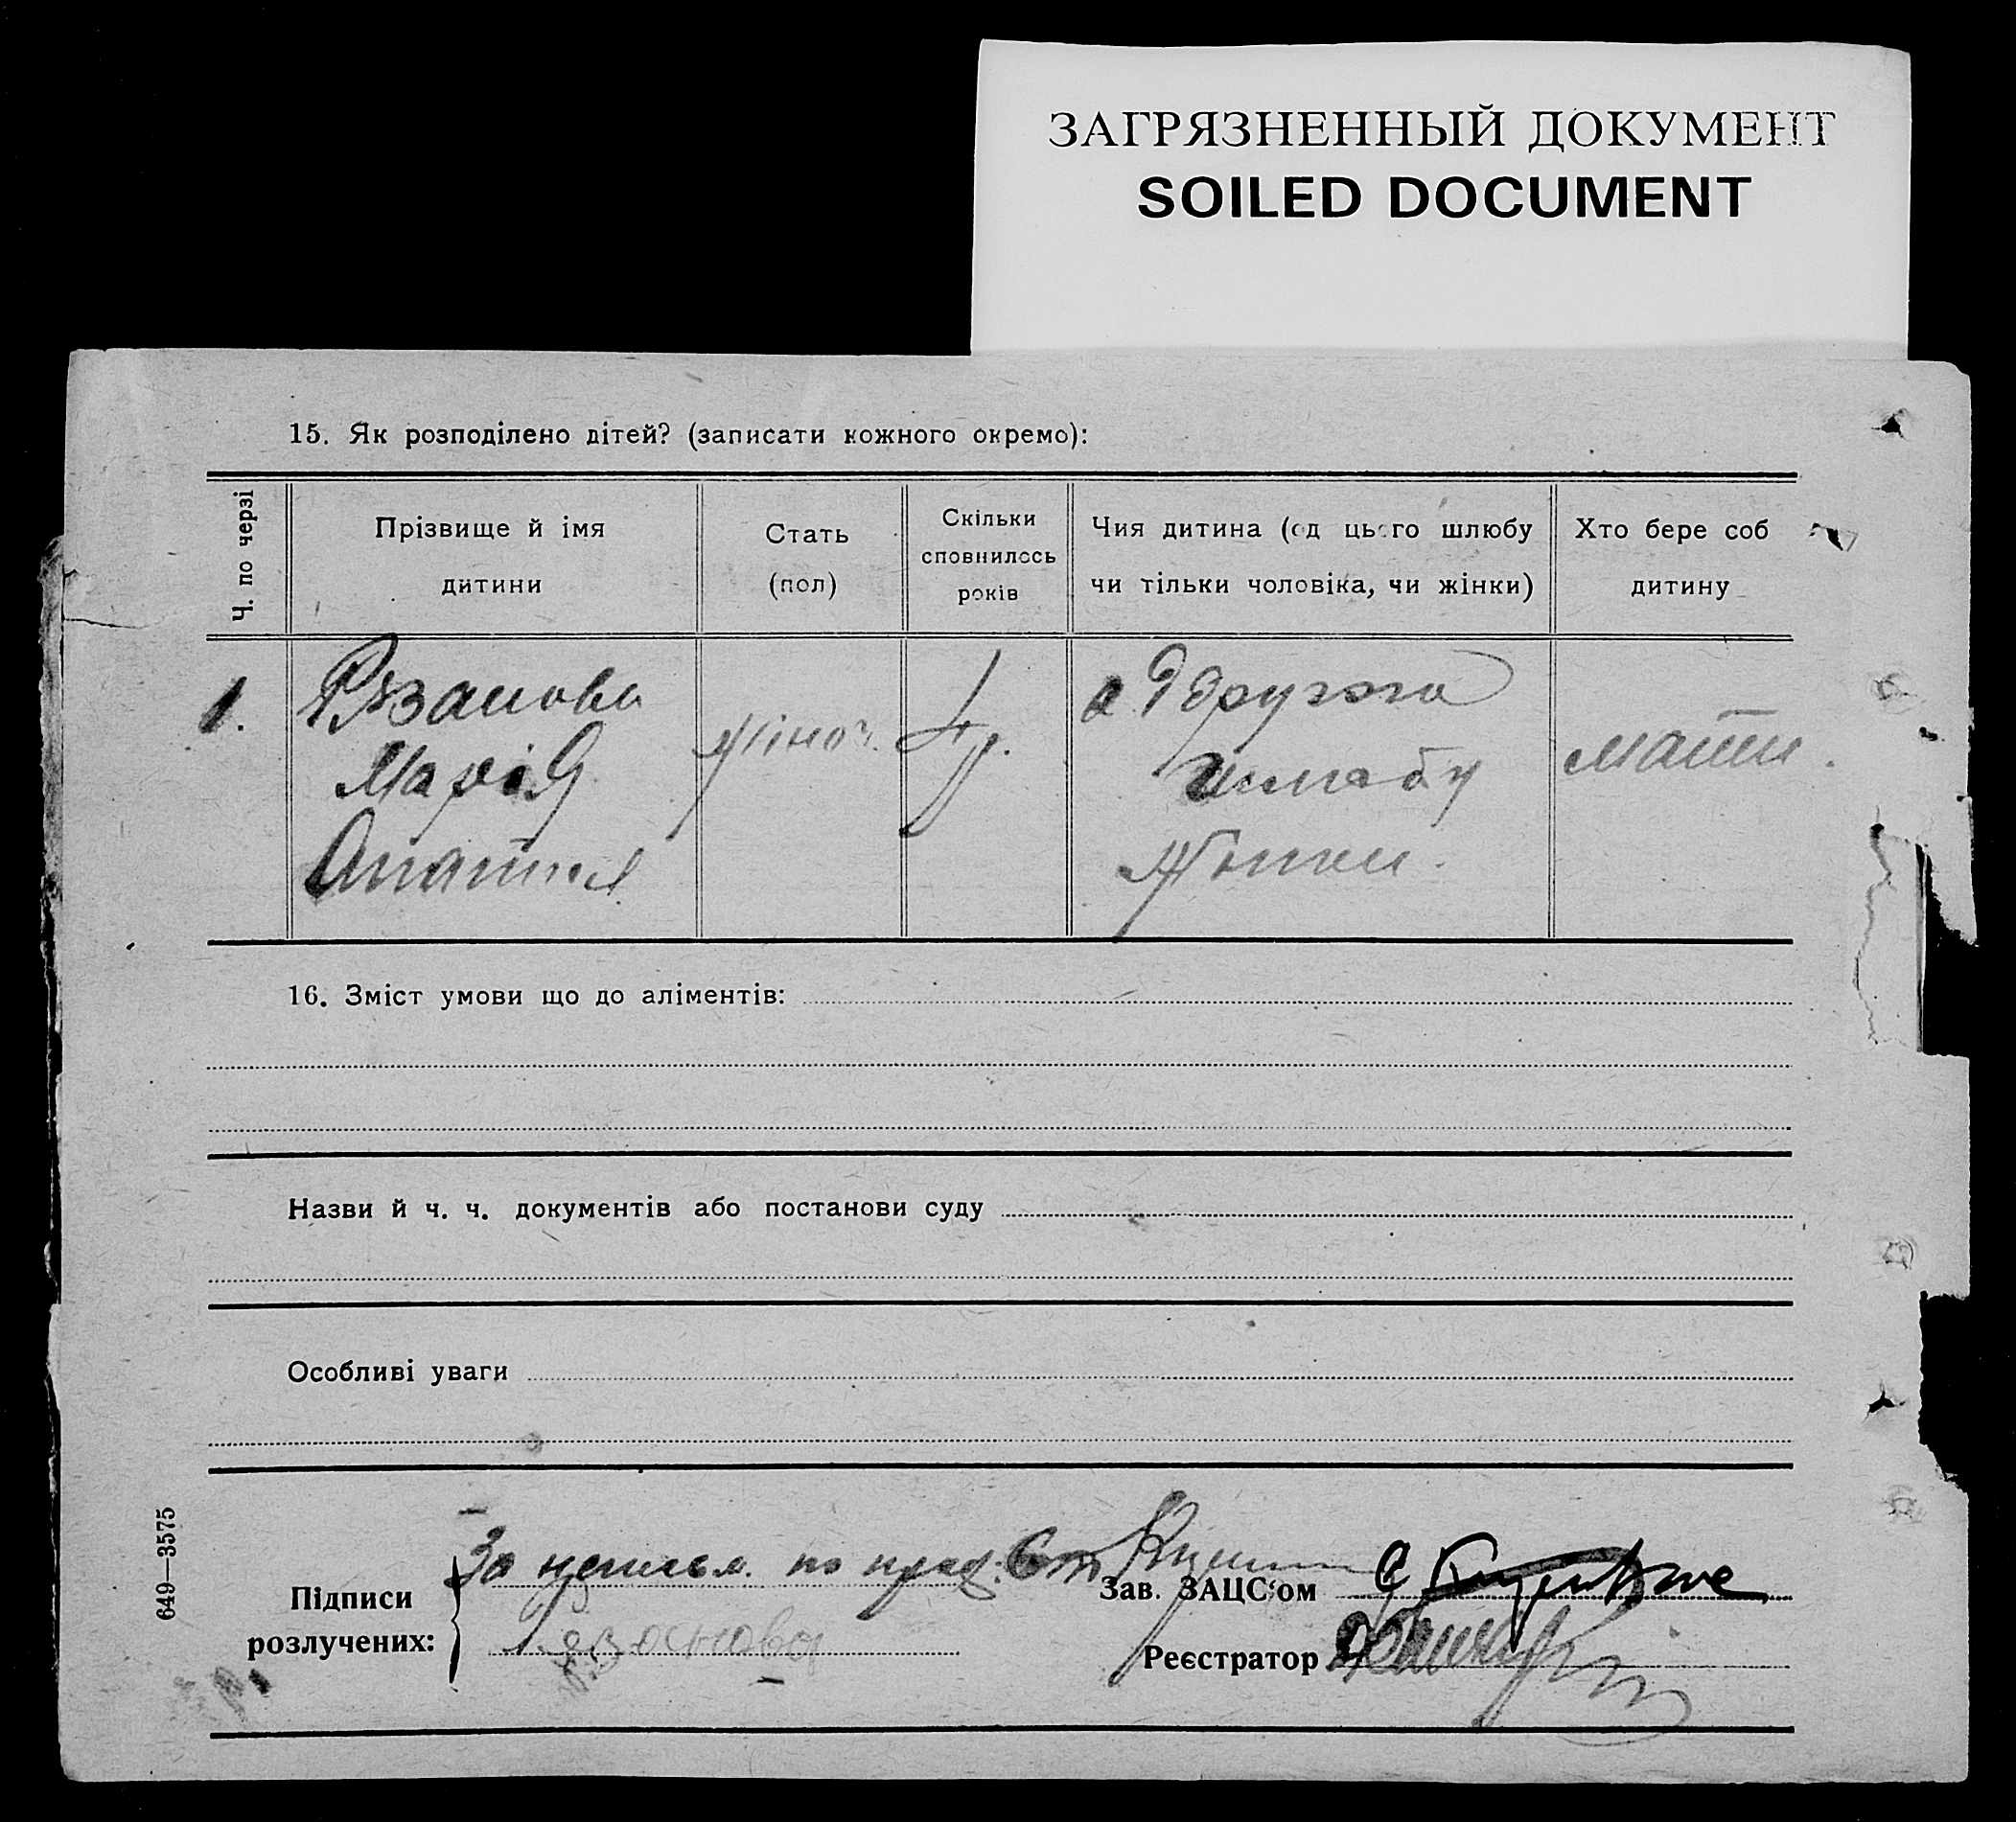 ЗАГРЯЗНЕННЫЙ ДОКУМЕНТ
SOILED DOCUMENT
15. Як розподілено дітей? (записати кожного окремо):
Ч. по черзі
Прізвище й імя
дитини
Стать
(пол)
Скільки
сповнилось
років
Чия дитина (од цього шлюбу
чи тільки чоловіка, чи жінки)
Хто бере соб
дитину
1.
Рязанова
Марія
жіноч.
4 р.
з другого
шлюбу
жінки.
мати.
16. Зміст умови що до аліментів:
Назви й ч. ч. документів або постанови суду
Особливі уваги
649—3575
Підписи
розлучених:
За неписьм. по
Зав. ЗАЦС'ом
Реєстратор